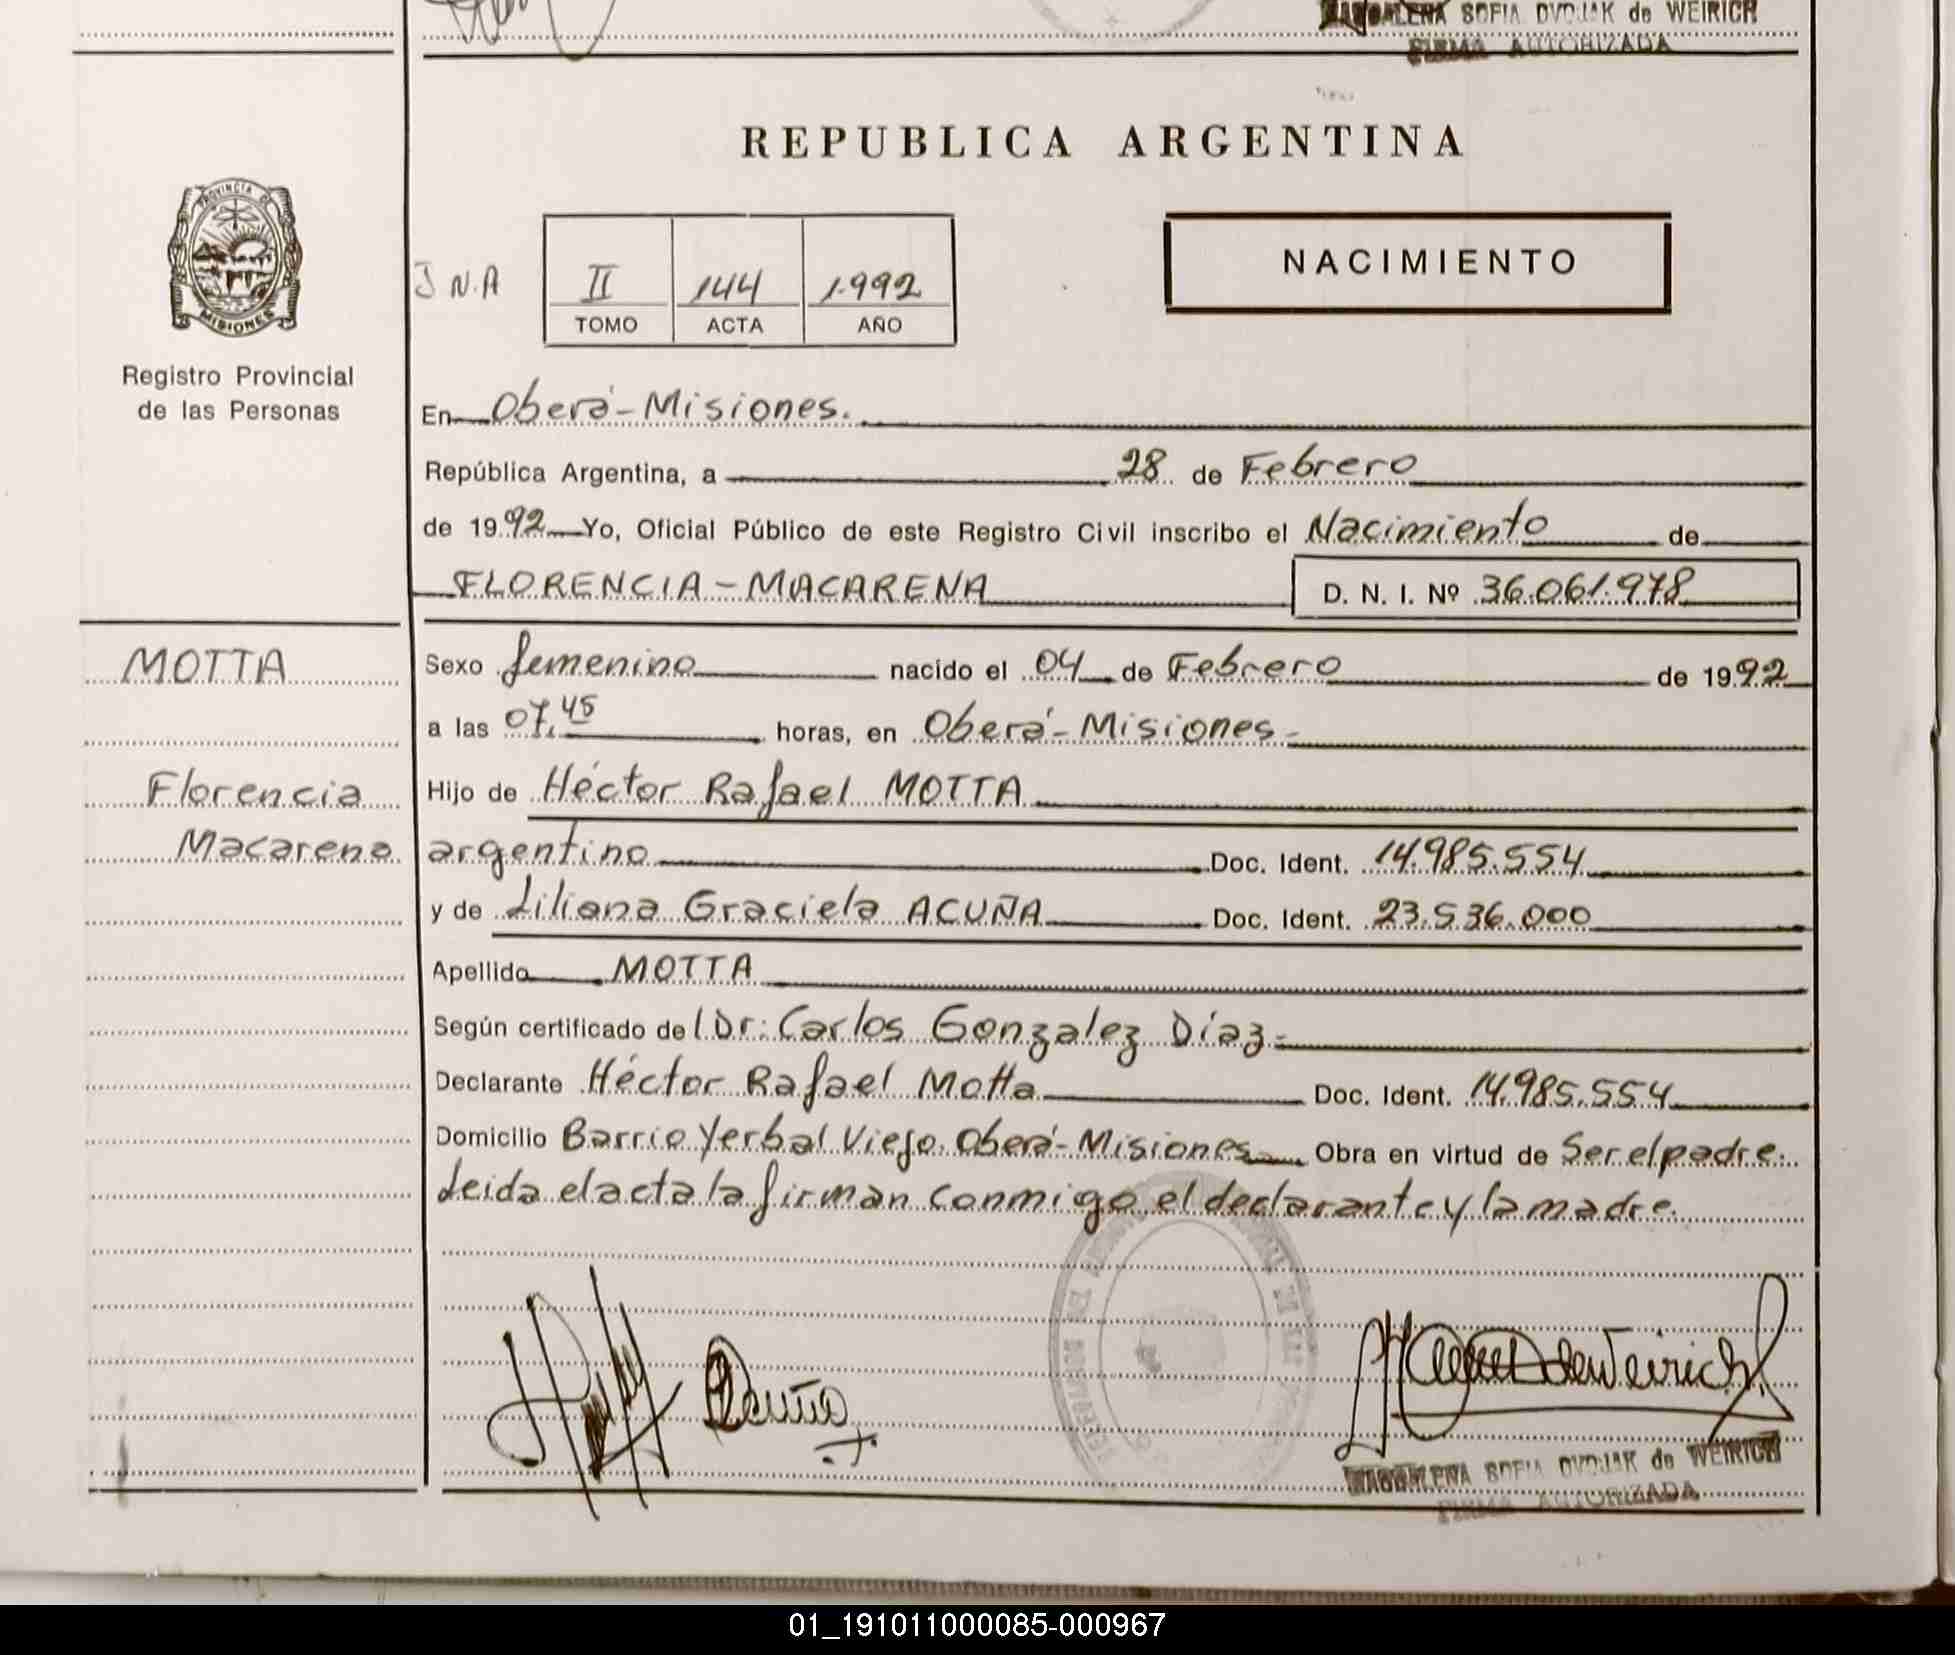 MAGDALENA SOFIA DVOJAK de WEIRICH
FIRMA AUTORIZADA
REPUBLICA ARGENTINA
PROVINCIA DE
MISIONES
Registro Provincial
de las Personas
J N.A
II 144 1.992
TOMO ACTA AÑO
NACIMIENTO
En Oberá-Misiones.
República Argentina, a 28 de Febrero
de 1992 Yo, Oficial Público de este Registro Civil inscribo el Nacimiento de
FLORENCIA-MACARENA D. N. I. Nº 36.061.978
MOTTA
Florencia
Macarena
Sexo femenino nacido el 04 de Febrero de 1992
a las 07,45 horas, en Oberá-Misiones-
Hijo de Héctor Rafael MOTTA
argentino Doc. Ident. 14.985.554
y de Liliana Graciela ACUÑA Doc. Ident. 23.536.000
Apellido MOTTA
Según certificado de l Dr: Carlos Gonzalez Díaz-
Declarante Héctor Rafael Motta Doc. Ident. 14.985.554
Domicilio Barrio Yerbal Viejo. Oberá-Misiones Obra en virtud de Ser el padre.
Leida el acta la firman conmigo el declarante y la madre.
Acuña
de Weirich
MAGDALENA SOFIA DVOJAK de WEIRICH
FIRMA AUTORIZADA
01_191011000085-000967